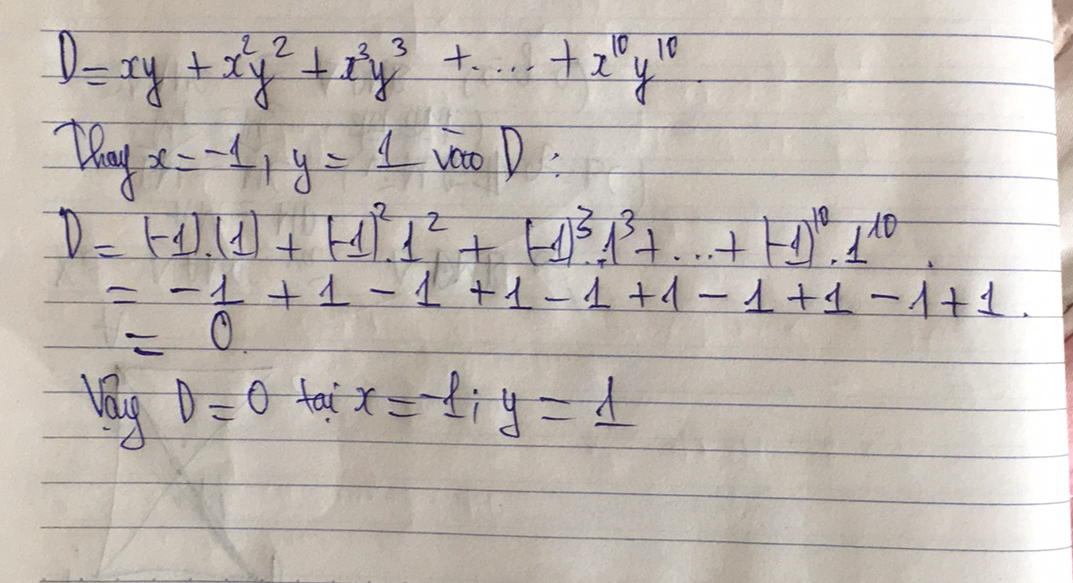 D = xy + x²y² + x³y³ + .... + x¹⁰y¹⁰.
Thay x = -1, y = 1 vào D :
D = (-1).(1) + (-1)².1² + (-1)³.1³ + ... + (-1)¹⁰.1¹⁰.
= -1 + 1 - 1 + 1 - 1 + 1 - 1 + 1 - 1 + 1.
= 0.
Vậy D = 0 tại x = -1; y = 1